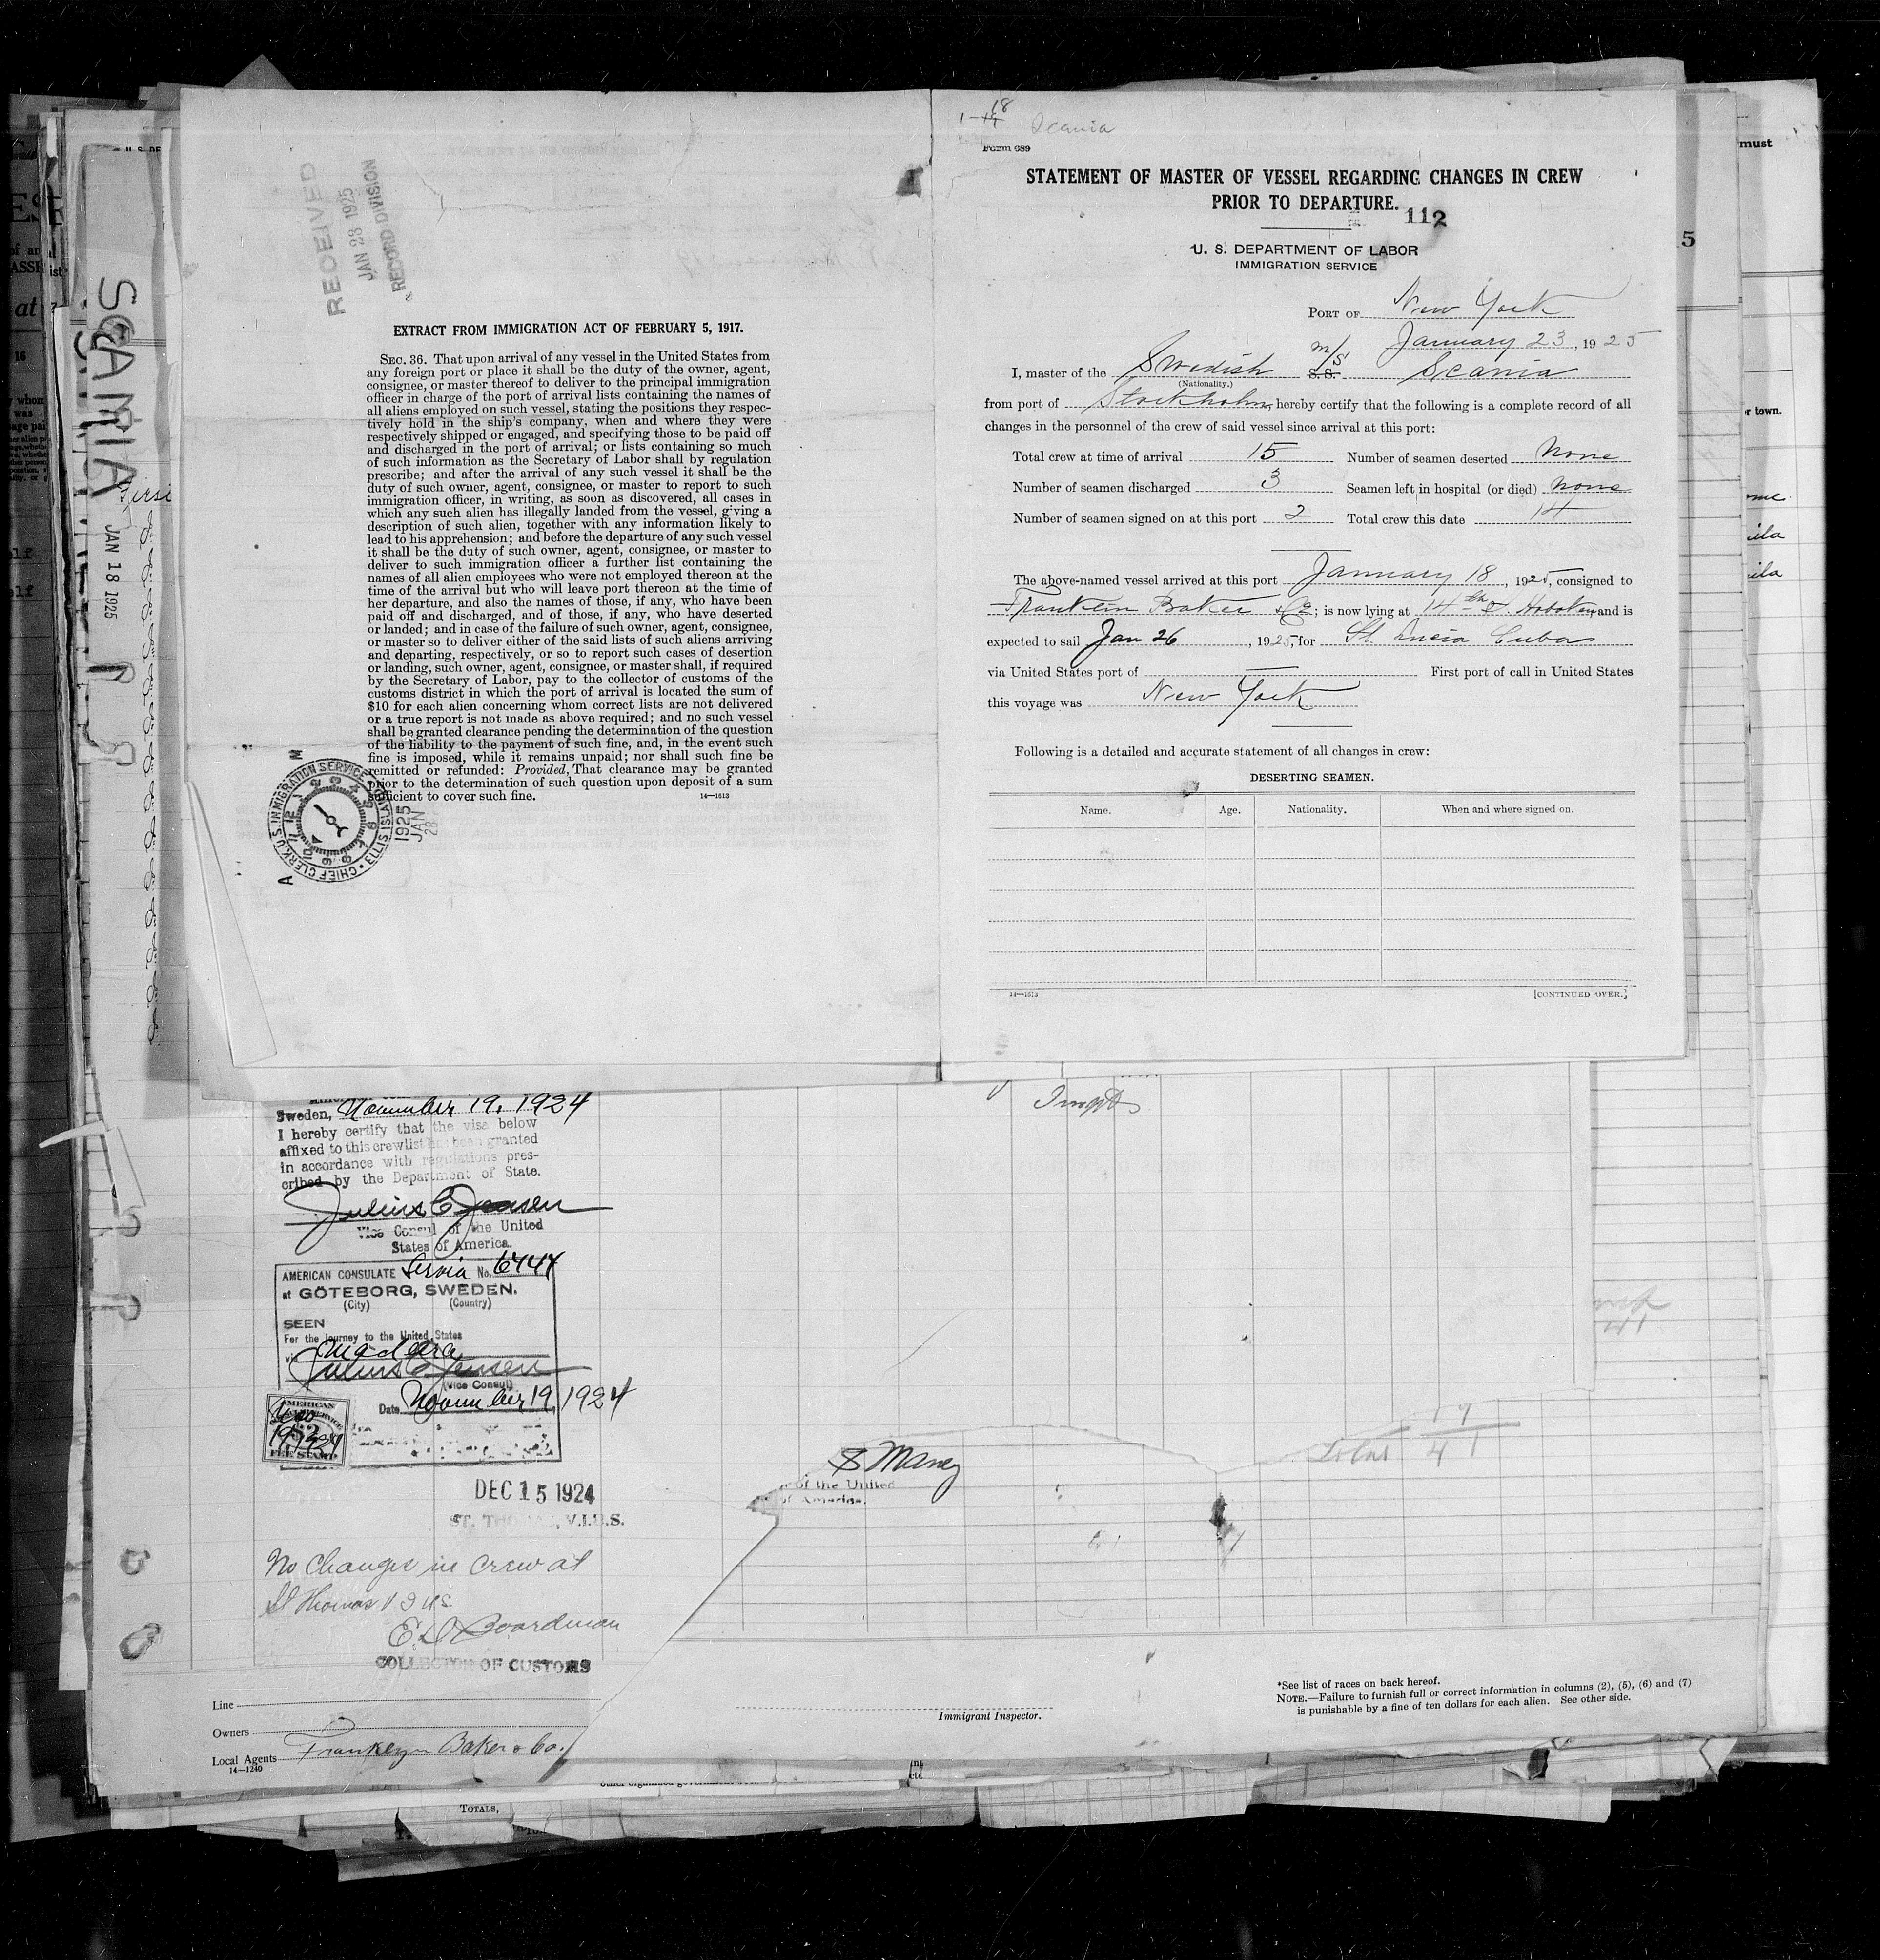 RECEIVED
JAN 28 1925
RECORD DIVISION
EXTRACT FROM IMMIGRATION ACT OF FEBRUARY 5, 1917.
SEC. 36. That upon arrival of any vessel in the United States from
any foreign port or place it shall be the duty of the owner, agent,
consignee, or master thereof to deliver to the principal immigration
officer in charge of the port of arrival lists containing the names of
all aliens employed on such vessel, stating the positions they respec-
tively hold in the ship's company, when and where they were
respectively shipped or engaged, and specifying those to be paid off
and discharged in the port of arrival; or lists containing so much
of such information as the Secretary of Labor shall by regulation
prescribe; and after the arrival of any such vessel it shall be the
duty of such owner, agent, consignee, or master to report to such
immigration officer, in writing, as soon as discovered, all cases in
which any such alien has illegally landed from the vessel, giving a
description of such alien, together with any information likely to
lead to his apprehension; and before the departure of any such vessel
it shall be the duty of such owner, agent, consignee, or master to
deliver to such immigration officer a further list containing the
names of all alien employees who were not employed thereon at the
time of the arrival but who will leave port thereon at the time of
her departure, and also the names of those, if any, who have been
paid off and discharged, and of those, if any, who have deserted
or landed; and in case of the failure of such owner, agent, consignee,
or master so to deliver either of the said lists of such aliens arriving
and departing, respectively, or so to report such cases of desertion
or landing, such owner, agent, consignee, or master shall, if required
by the Secretary of Labor, pay to the collector of customs of the
customs district in which the port of arrival is located the sum of
$10 for each alien concerning whom correct lists are not delivered
or a true report is not made as above required; and no such vessel
shall be granted clearance pending the determination of the question
of the liability to the payment of such fine, and, in the event such
fine is imposed, while it remains unpaid; nor shall such fine be
remitted or refunded: Provided, That clearance may be granted
prior to the determination of such question upon deposit of a sum
sufficient to cover such fine.
14—1613
CHIEF CLERK, U.S. IMMIGRATION SERVICE · ELLIS ISLAND
1925
JAN
28
SCANIA
JAN 18 1925
Scania
Form 689
STATEMENT OF MASTER OF VESSEL REGARDING CHANGES IN CREW
PRIOR TO DEPARTURE.
112
U. S. DEPARTMENT OF LABOR
IMMIGRATION SERVICE
PORT OF New York
January 23, 1925
I, master of the Swedish m/s S.S. Scania
(Nationality.)
from port of Stockholm, hereby certify that the following is a complete record of all
changes in the personnel of the crew of said vessel since arrival at this port:
Total crew at time of arrival 15 Number of seamen deserted None
Number of seamen discharged 3 Seamen left in hospital (or died) none
Number of seamen signed on at this port 2 Total crew this date 14
The above-named vessel arrived at this port January 18, 1925, consigned to
Franklin Baker & Co; is now lying at 14th St. Hoboken, and is
expected to sail Jan 26, 1925, for St. Lucia Cuba
via United States port of — First port of call in United States
this voyage was New York
Following is a detailed and accurate statement of all changes in crew:
DESERTING SEAMEN.
Name. Age. Nationality. When and where signed on.
14—1613
[CONTINUED OVER.]
Sweden, November 19, 1924
I hereby certify that the visa below
affixed to this crewlist has been granted
in accordance with regulations pres-
cribed by the Department of State.
Julius C Jensen
Vice Consul of the United
States of America.
AMERICAN CONSULATE Servia No. 6444
at GÖTEBORG, SWEDEN.
(City) (Country)
SEEN
For the journey to the United States
via Madeira
Julius C Jensen
(Vice Consul)
Date November 19, 1924
AMERICAN
FEE STAMP
DEC 15 1924
ST. THOMAS, V.I.U.S.
No Changes in Crew at
St Thomas V I US
E D Boardman
COLLECTOR OF CUSTOMS
of the United
of America.
Total 41
Line
Owners
Local Agents Franklyn Baker & Co.
14—1240
Immigrant Inspector.
*See list of races on back hereof.
NOTE.—Failure to furnish full or correct information in columns (2), (5), (6) and (7)
is punishable by a fine of ten dollars for each alien. See other side.
TOTALS,
must
or town.